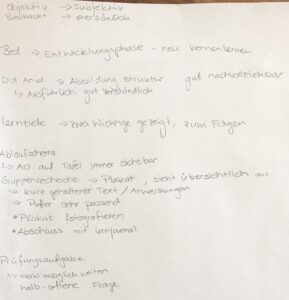 Objektiv → Subjektiv
Bedacht → persönlich
Bed → Entwicklungsphase - neu kennenlernen
Did Anal → Abbildung Struktur gut nachvollziehbar
↳ Ausführlich gut verständlich
Lernziele → zwei wichtige gezeigt, zum Folgen
Ablaufschema
↳ AO auf Tafel immer sichtbar
Gruppenrecherche → Plakat, sieht übersichtlich aus
↳ kurz gehaltener Text / Anweisungen
→ Puffer sehr passend
• Plakat fotografieren
• Abschluss mit Lernjournal
Prüfungsaufgabe
↳ möglichkeiten
halb-offene Frage